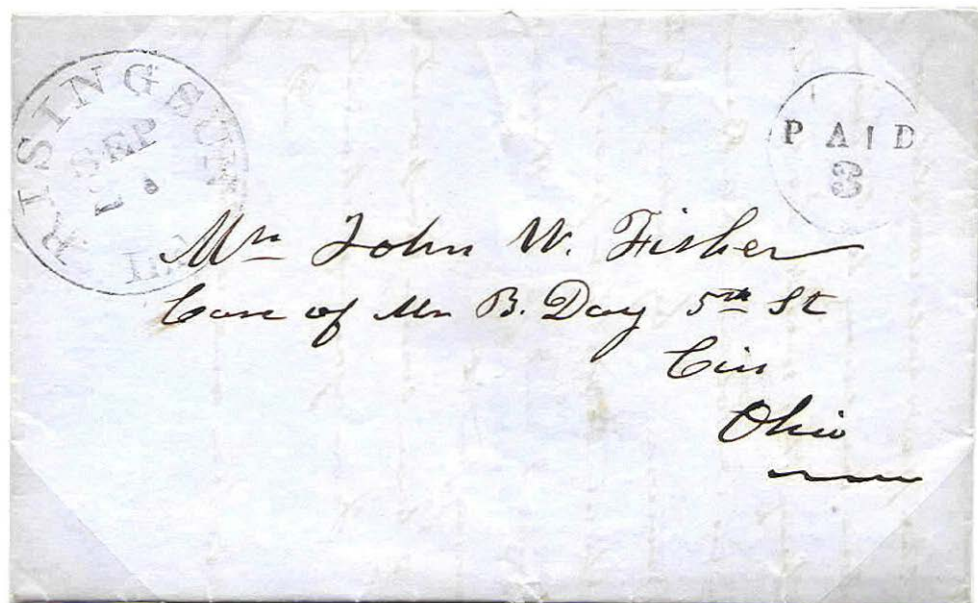 RISING SUN
SEP
PAID
3
Mr John W. Fisher
Care of Mr B. Day 5th St
Cin
Ohio